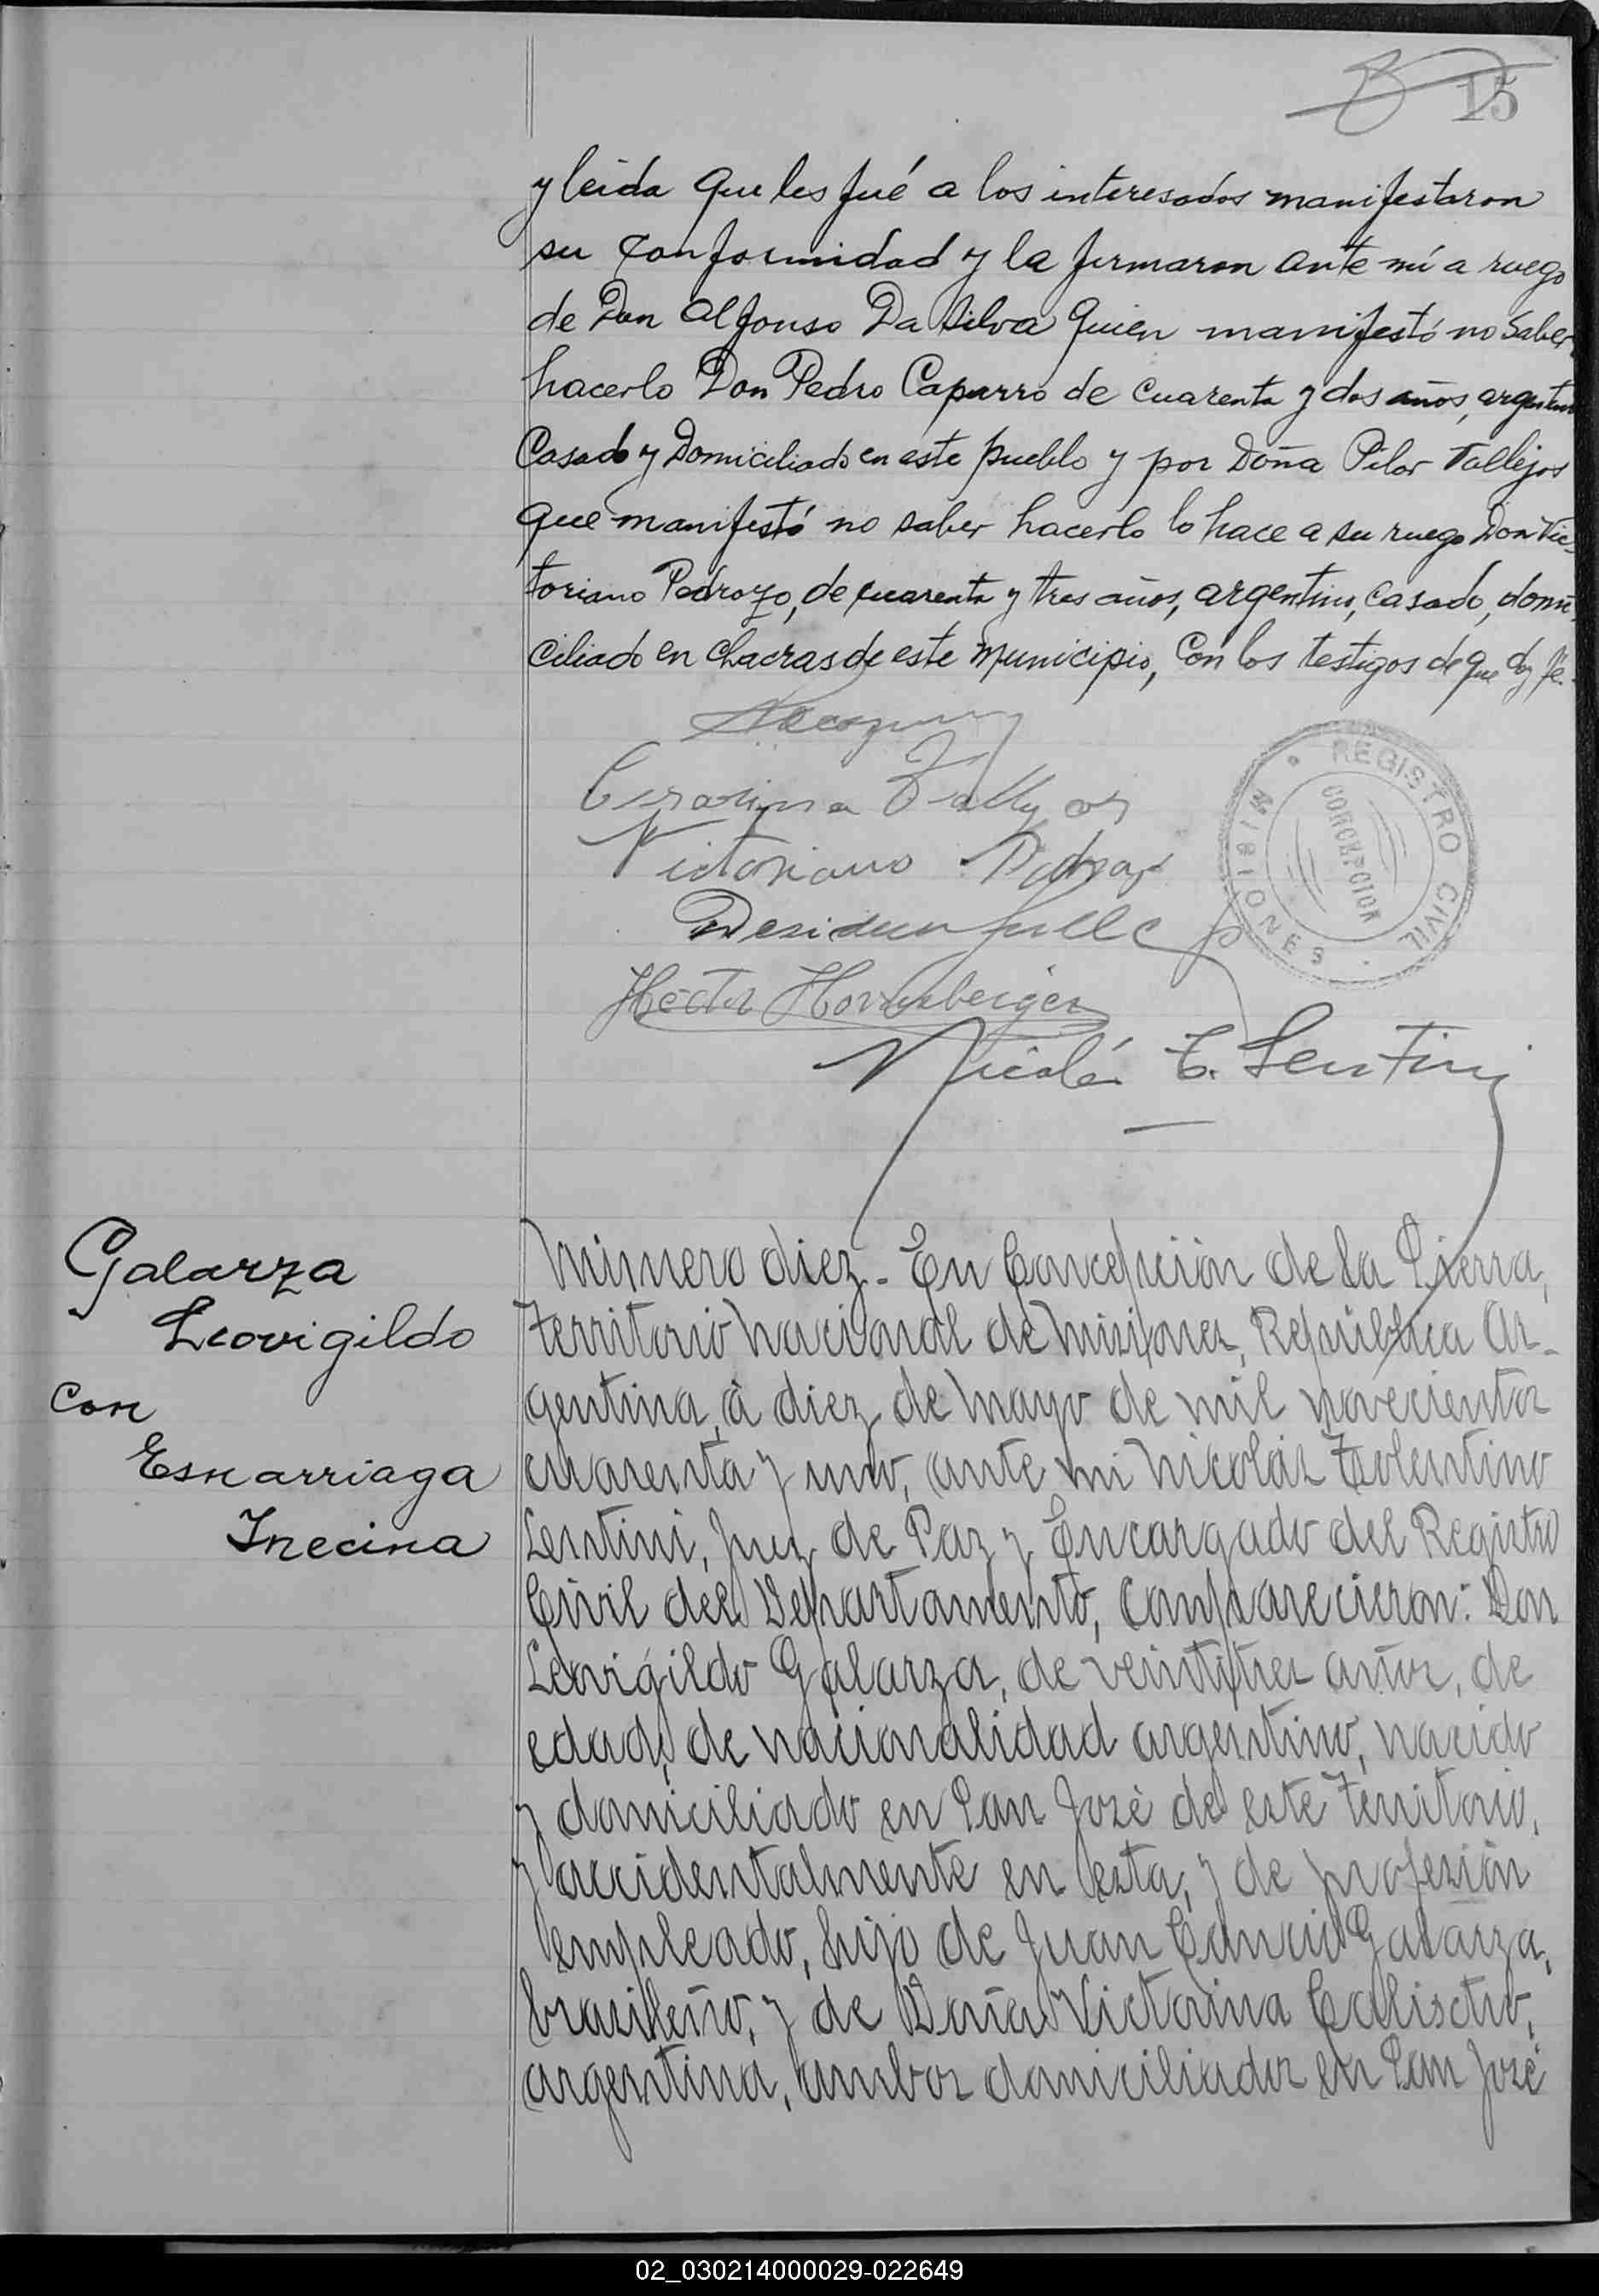 15
y leida que les fué a los interesados manifestaron
su conformidad y la firmaron ante mí a ruego
de Don Alfonso Da Silva quien manifestó no saber
hacerlo Don Pedro Caparro de cuarenta y dos años, argentino
Casado y Domiciliado en este pueblo y por Doña Pilar Tallejos
que manifestó no saber hacerlo lo hace a su ruego Don Vic-
toriano Pedrozo, de cuarenta y tres años, argentino, casado, domi-
ciliado en chacras de este Municipio, con los testigos de que doy fé.-
REGISTRO CIVIL
CONCEPCION
MISIONES
Victoriano
Héctor Hornberger
Nicolás T. Lentini
Galarza
Leovigildo
con
Esnarriaga
Inecina
Número diez.- En Concepción de la Sierra,
territorio nacional de Misiones, República Ar-
gentina, à diez de Mayo de mil novecientos
cuarenta y uno, ante mi Nicolás Tolentino
Lentini, Juez de Paz y Encargado del Registro
Civil del Departamento, comparecieron: Don
Leovigildo Galarza, de veintitres años, de
edad, de nacionalidad argentino, nacido
y domiciliado en San José de este Territorio,
y accidentalmente en esta, y de profesión
empleado, hijo de Juan Galarza,
brasileño, y de Doña Victorina Calisctro,
argentina, ambos domiciliados en San José
02_030214000029-022649